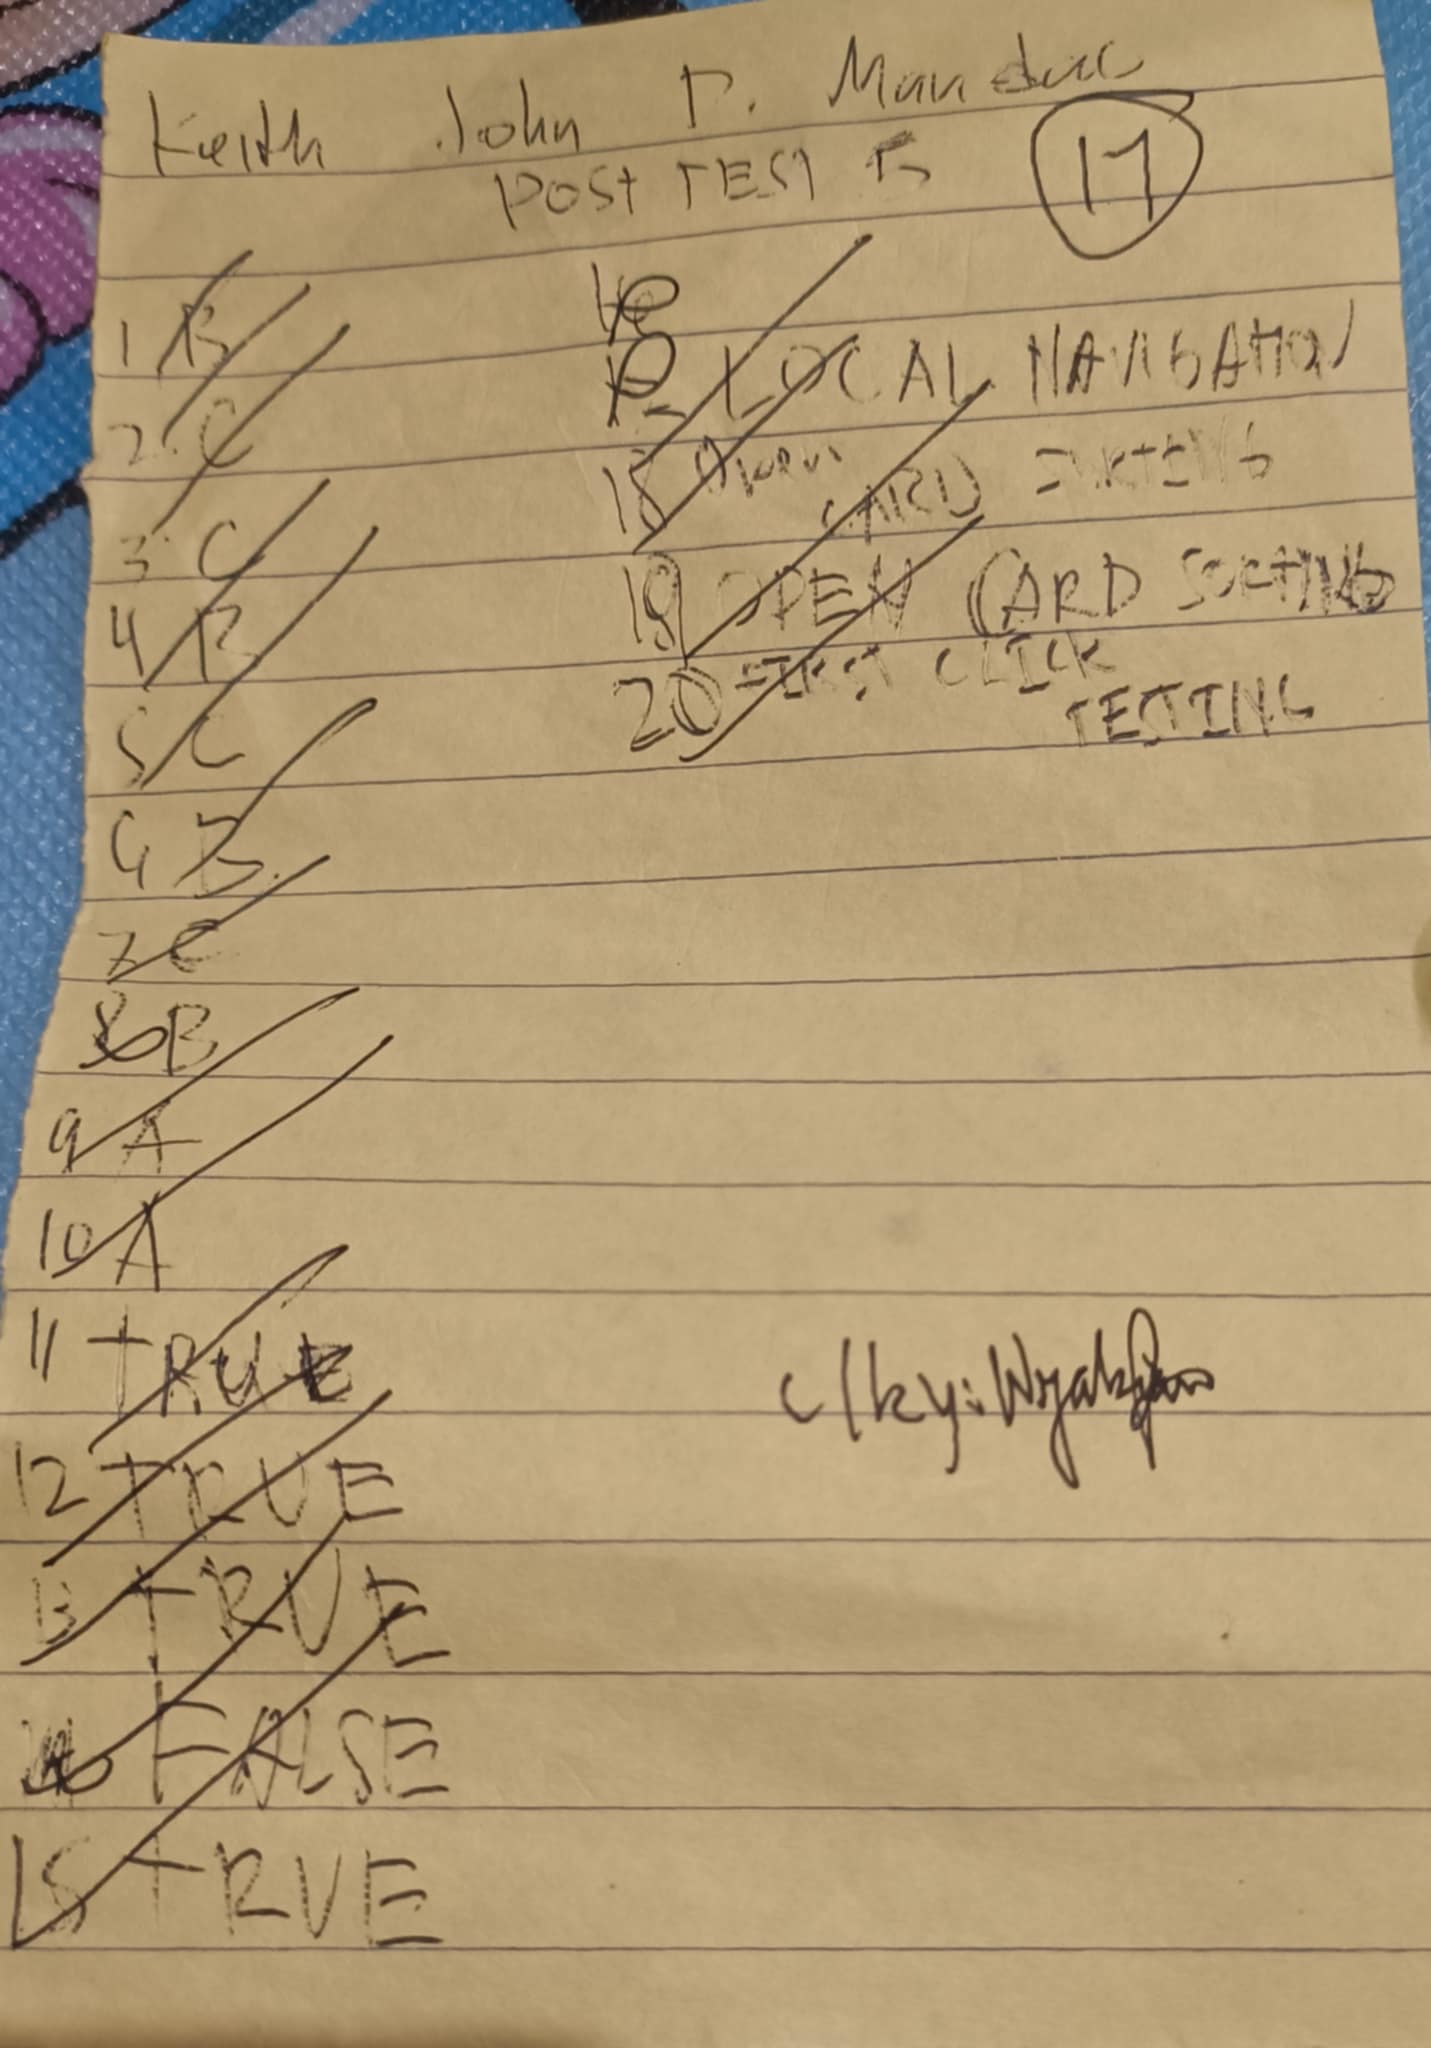 Keith John P.
POST TEST 5
17
1 B
2. C
3 C
4 B
5 C
6 B.
7 C
8 B
9 A
10 A
11 TRUE
12 TRUE
13 TRUE
14 FALSE
15 TRUE
16
17 LOCAL NAVIGATION
18 Open CARD SORTING
19 OPEN CARD SORTING
20 FIRST CLICK
TESTING